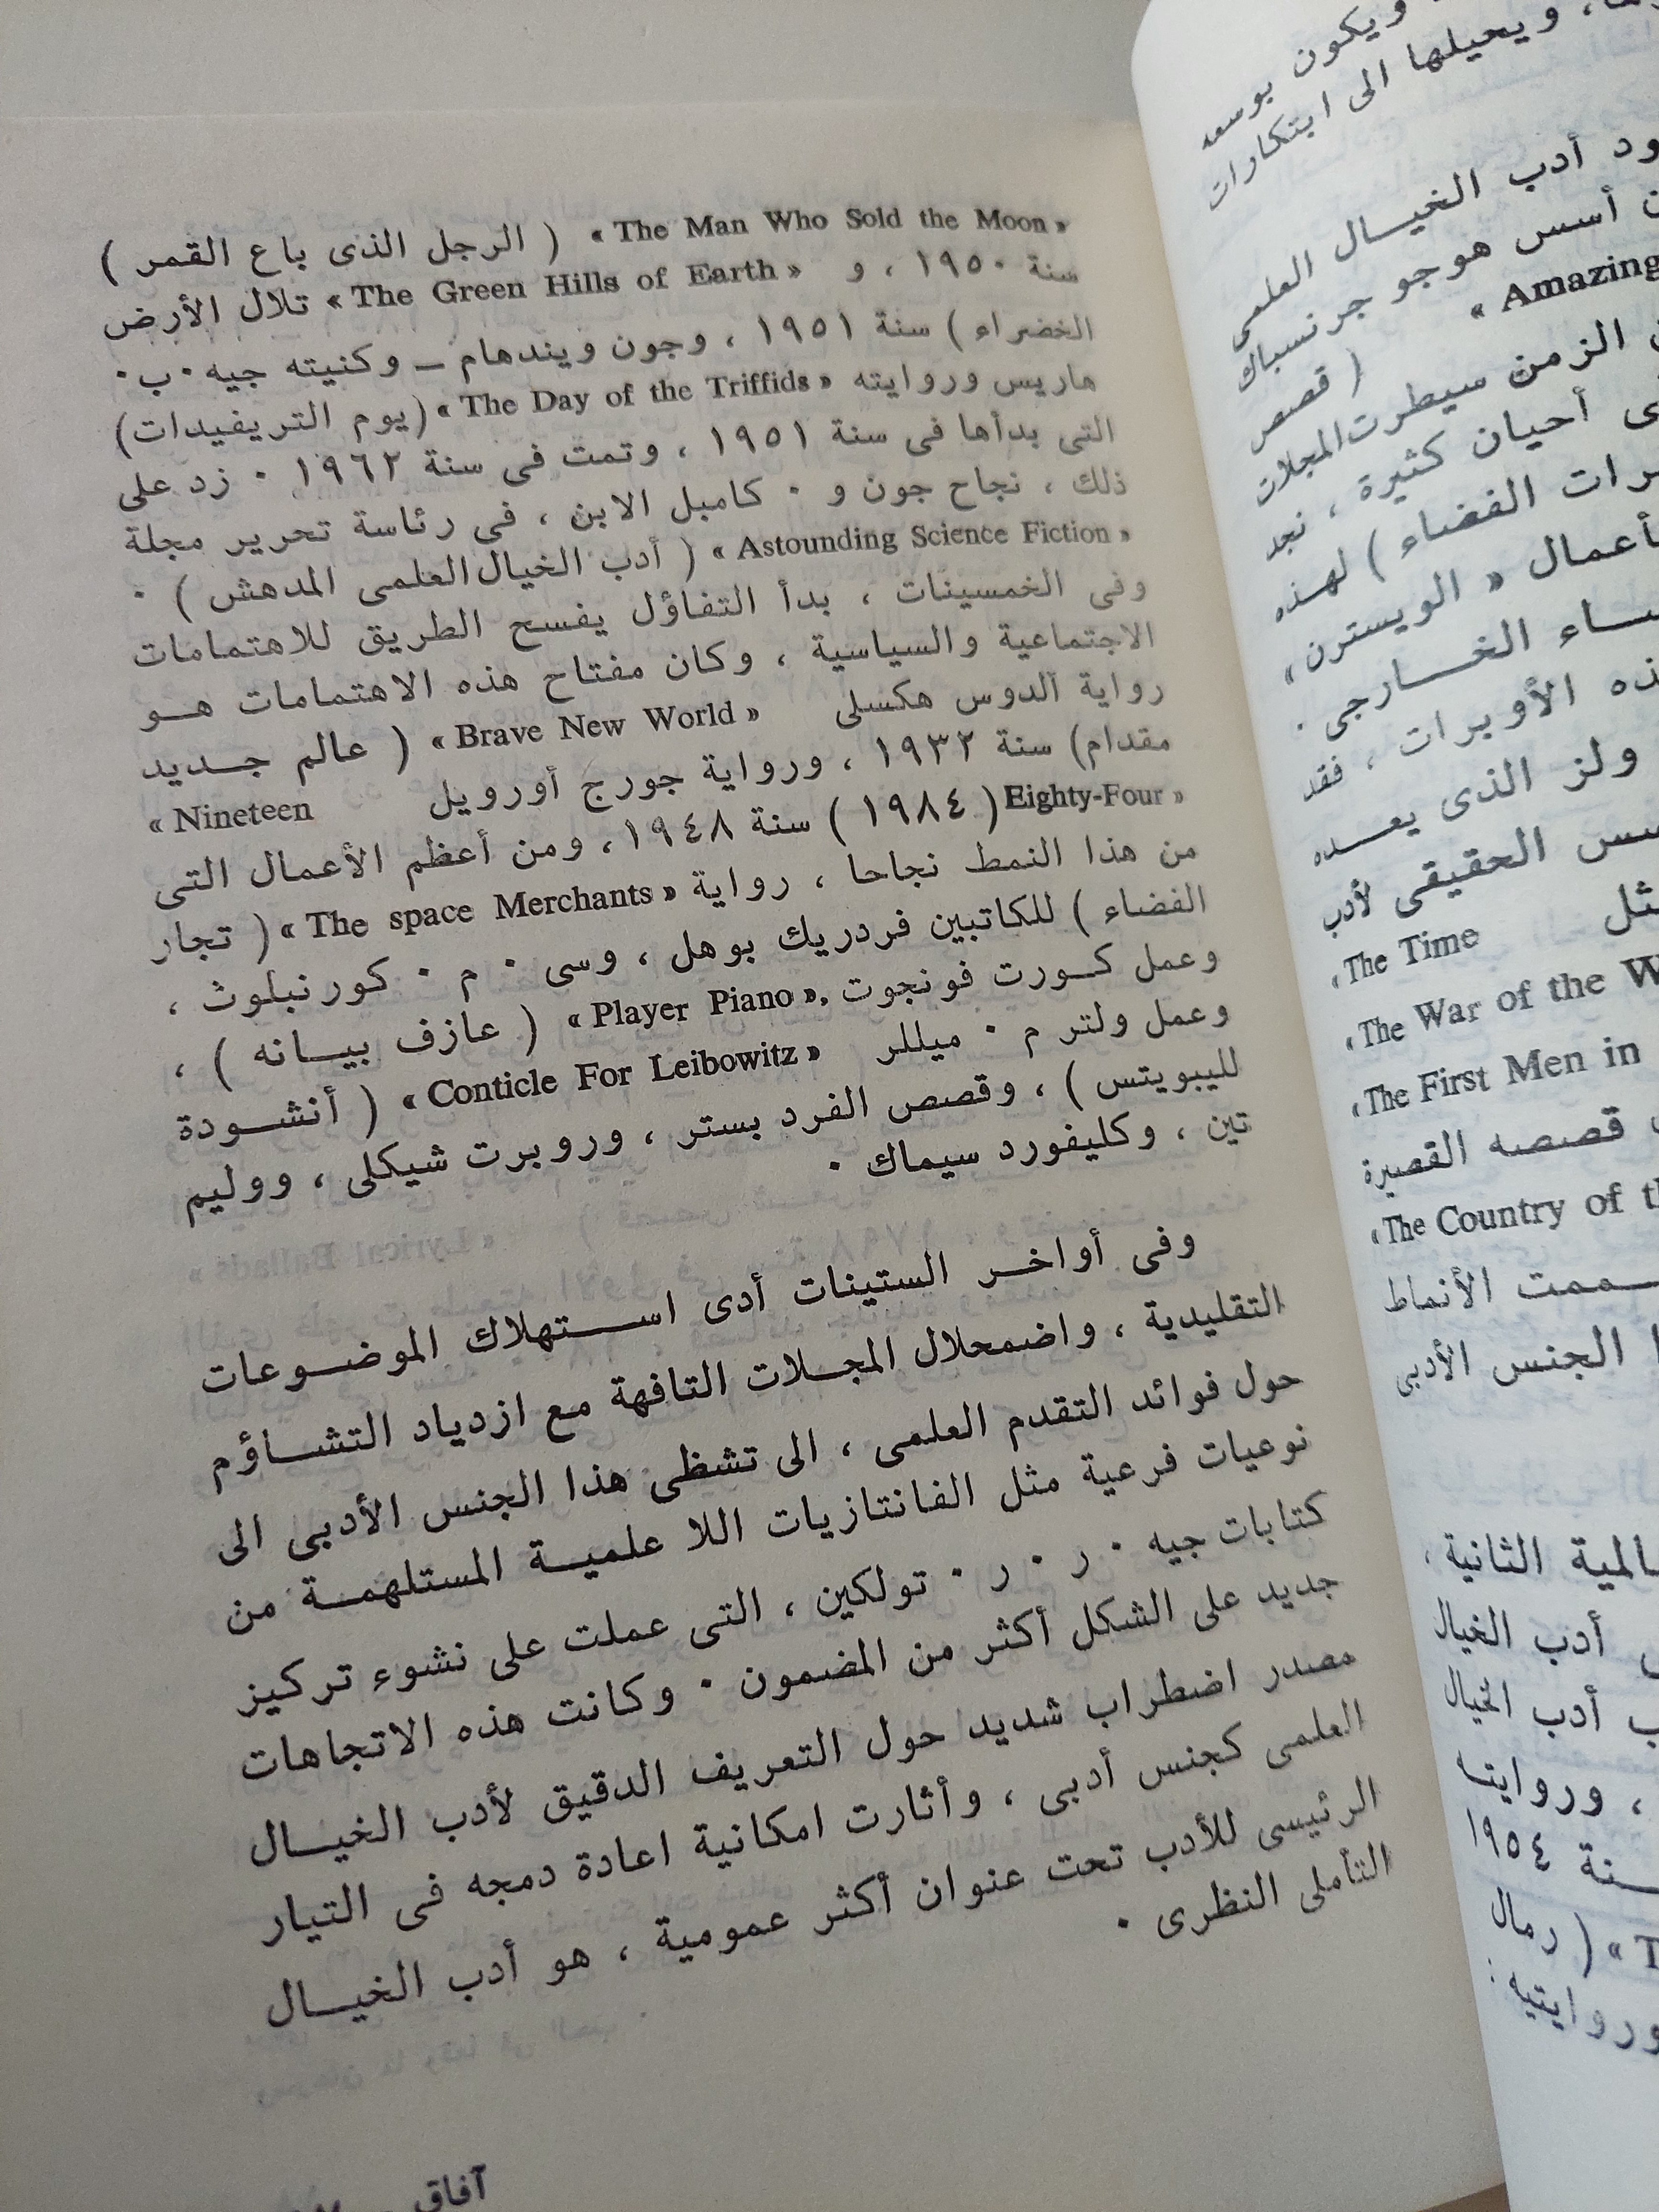 ويكون بوسعه
ويحيلها الى ابتكارات
أدب الخيـــال العلمى
أسس هوجو جرنسباك
« Amazing
( قصص
الزمن سيطرت المجلات
أحيان كثيرة ، نجد
الفضاء ) لهذه
« الويسترن »
الخـــارجى .
الأوبرات ، فقد
ولز الذى يعـــده
الحقيقى لأدب
« The Time
« The War of the W
« The First Men in
قصصه القصيرة
« The Country of
الأنماط
الجنس الأدبى
الثانية ،
أدب الخيال
أدب الخيال
، وروايته
١٩٥٤
( رمال
وروايتيه :
« The Man Who Sold the Moon » ( الرجل الذى باع القمر )
سنة ١٩٥٠ ، و « The Green Hills of Earth » تلال الأرض
الخضراء ) سنة ١٩٥١ ، وجون ويندهام ــ وكنيته جيه ٠ ب ٠
هاريس وروايته « The Day of the Triffids » (يوم التريفيدات)
التى بدأها فى سنة ١٩٥١ ، وتمت فى سنة ١٩٦٢ ٠ زد على
ذلك ، نجاح جون و ٠ كامبل الابن ، فى رئاسة تحرير مجلة
« Astounding Science Fiction » ( أدب الخيال العلمى المدهش ) ٠
وفى الخمسينات ، بدأ التفاؤل يفسح الطريق للاهتمامات
الاجتماعية والسياسية ، وكان مفتاح هذه الاهتمامات هـــو
رواية الدوس هكسلى « Brave New World » ( عالم جـــديد
مقدام) سنة ١٩٣٢ ، ورواية جورج أورويل « Nineteen
Eighty-Four » ( ١٩٨٤ ) سنة ١٩٤٨ ، ومن أعظم الأعمال التى
من هذا النمط نجاحا ، رواية « The space Merchants » ( تجار
الفضاء ) للكاتبين فردريك بوهل ، وسى ٠ م ٠ كورنبلوث ،
وعمل كـــورت فونجوت « Player Piano », ( عازف بيـــانه ) ،
وعمل ولتر م ٠ ميللر « Conticle For Leibowitz » ( أنشـــودة
لليبويتس ) ، وقصص الفرد بستر ، وروبرت شيكلى ، ووليم
تين ، وكليفورد سيماك ٠
وفى أواخـــر الستينات أدى اســـتهلاك الموضـــوعات
التقليدية ، واضمحلال المجـــلات التافهة مع ازدياد التشـــاؤم
حول فوائد التقدم العلمى ، الى تشظى هذا الجنس الأدبى الى
نوعيات فرعية مثل الفانتازيات اللا علميـــة المستلهمـــة من
كتابات جيه ٠ ر ٠ ر ٠ تولكين ، التى عملت على نشوء تركيز
جديد على الشكل أكثر من المضمون ٠ وكانت هذه الاتجاهات
مصدر اضطراب شديد حول التعريف الدقيق لأدب الخيـــال
العلمى كجنس أدبى ، وأثارت امكانية اعادة دمجه فى التيار
الرئيسى للأدب تحت عنوان أكثر عمومية ، هو أدب الخيـــال
التأملى النظرى ٠
آفاق